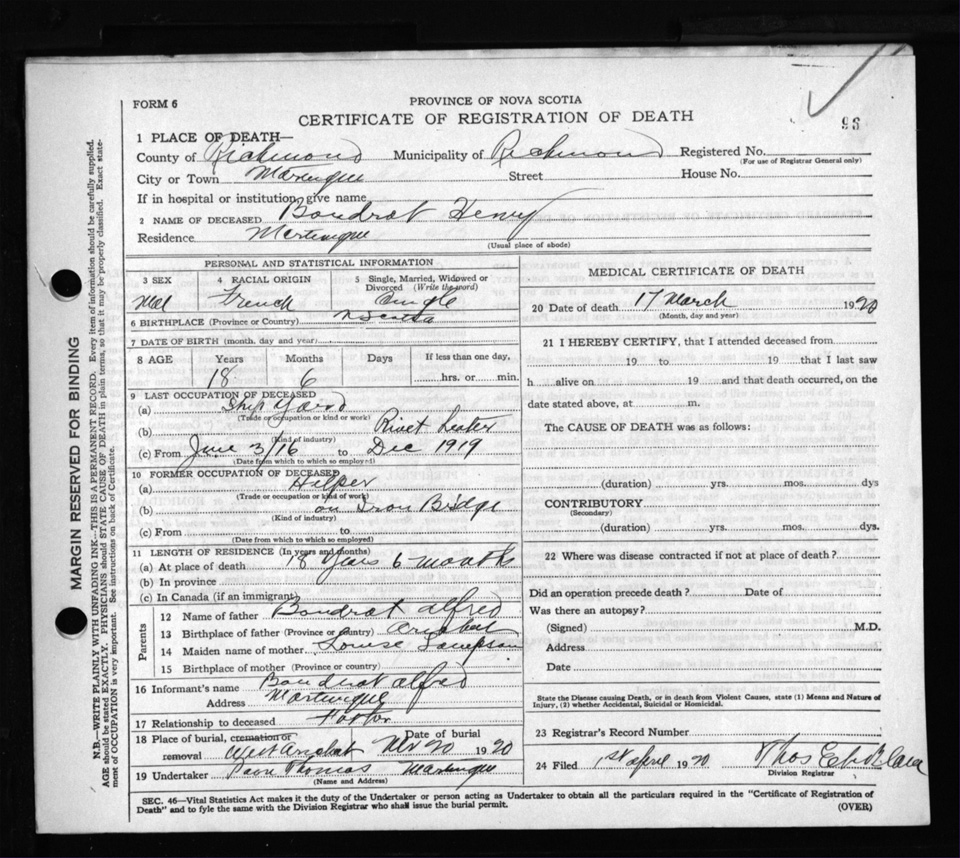 FORM 6
PROVINCE OF NOVA SCOTIA
CERTIFICATE OF REGISTRATION OF DEATH
96
1 PLACE OF DEATH—
County of Richmond Municipality of Richmond Registered No.
(For use of Registrar General only)
City or Town Street House No.
If in hospital or institution, give name
2 NAME OF DECEASED Boudrot Henry
Residence Martinique
(Usual place of abode)
PERSONAL AND STATISTICAL INFORMATION
3 SEX 4 RACIAL ORIGIN 5 Single, Married, Widowed or Divorced (Write the word)
Mal French Single
6 BIRTHPLACE (Province or Country) N Scotia
7 DATE OF BIRTH (month, day and year)
8 AGE Years Months Days If less than one day,
18 6 hrs. or min.
9 LAST OCCUPATION OF DECEASED
(a) Ship Yard
(Trade or occupation or kind or work)
(b) Rivet Heater
(Kind of industry)
(c) From June 3/16 to Dec 1919
(Date from which to which so employed)
10 FORMER OCCUPATION OF DECEASED
(a) Helper
(Trade or occupation or kind of work)
(b) on Iron Bridge
(Kind of industry)
(c) From to
(Date from which to which so employed)
11 LENGTH OF RESIDENCE (In years and months)
(a) At place of death 18 years 6 months
(b) In province
(c) In Canada (if an immigrant)
Parents
12 Name of father Boudrot Alfred
13 Birthplace of father (Province or Country) Arichat
14 Maiden name of mother Louise Sampson
15 Birthplace of mother (Province or country)
16 Informant's name Boudrot Alfred
Address Martinique
17 Relationship to deceased
18 Place of burial, cremation or removal Date of burial
West Arichat 20 1920
19 Undertaker Thomas
(Name and Address)
MEDICAL CERTIFICATE OF DEATH
20 Date of death 17 March 1920
(Month, day and year)
21 I HEREBY CERTIFY, that I attended deceased from
19 to 19 that I last saw
h alive on 19 and that death occurred, on the
date stated above, at m.
The CAUSE OF DEATH was as follows:
(duration) yrs. mos. dys
CONTRIBUTORY
(Secondary)
(duration) yrs. mos. dys.
22 Where was disease contracted if not at place of death?
Did an operation precede death? Date of
Was there an autopsy?
(Signed) M.D.
Address
Date
State the Disease causing Death, or in death from Violent Causes, state (1) Means and Nature of
Injury, (2) whether Accidental, Suicidal or Homicidal.
23 Registrar's Record Number
24 Filed 1st April 1920 Thos
Division Registrar
SEC. 46—Vital Statistics Act makes it the duty of the Undertaker or person acting as Undertaker to obtain all the particulars required in the "Certificate of Registration of
Death" and to fyle the same with the Division Registrar who shall issue the burial permit.
(OVER)
MARGIN RESERVED FOR BINDING
N.B.—WRITE PLAINLY WITH UNFADING INK—THIS IS A PERMANENT RECORD. Every item of information should be carefully supplied.
AGE should be stated EXACTLY. PHYSICIANS should STATE CAUSE OF DEATH in plain terms, so that it may be properly classified. Exact state-
ment of OCCUPATION is very important. See instructions on back of Certificate.